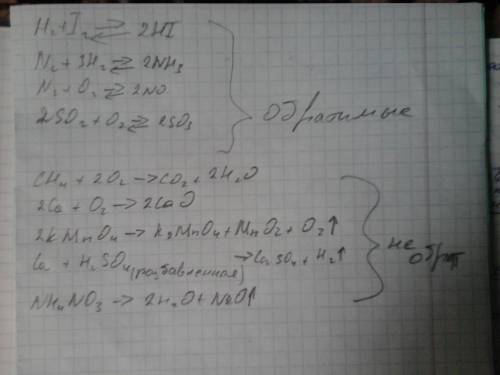 H₂ + I₂ ⇄ 2HI
N₂ + 3H₂ ⇄ 2NH₃
N₂ + O₂ ⇄ 2NO
2SO₂ + O₂ ⇄ 2SO₃
обратимые
CH₄ + 2O₂ → CO₂ + 2H₂O
2Ca + O₂ → 2CaO
2KMnO₄ → K₂MnO₄ + MnO₂ + O₂↑
Ca + H₂SO₄ (разбавленная) → CaSO₄ + H₂↑
NH₄NO₃ → 2H₂O + N₂O↑
не
обрат